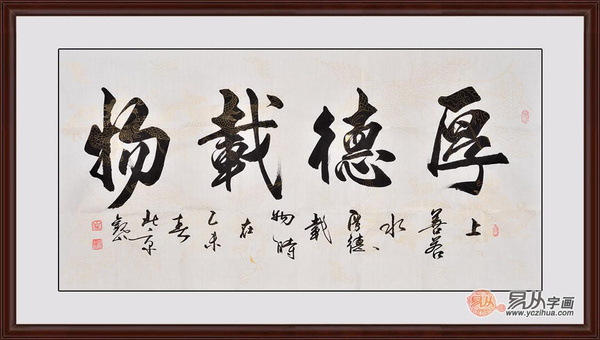 厚德載物
上
善若
水、
厚德
載
物時
在
乙未
春
北京
易从字画
www.yczihua.com